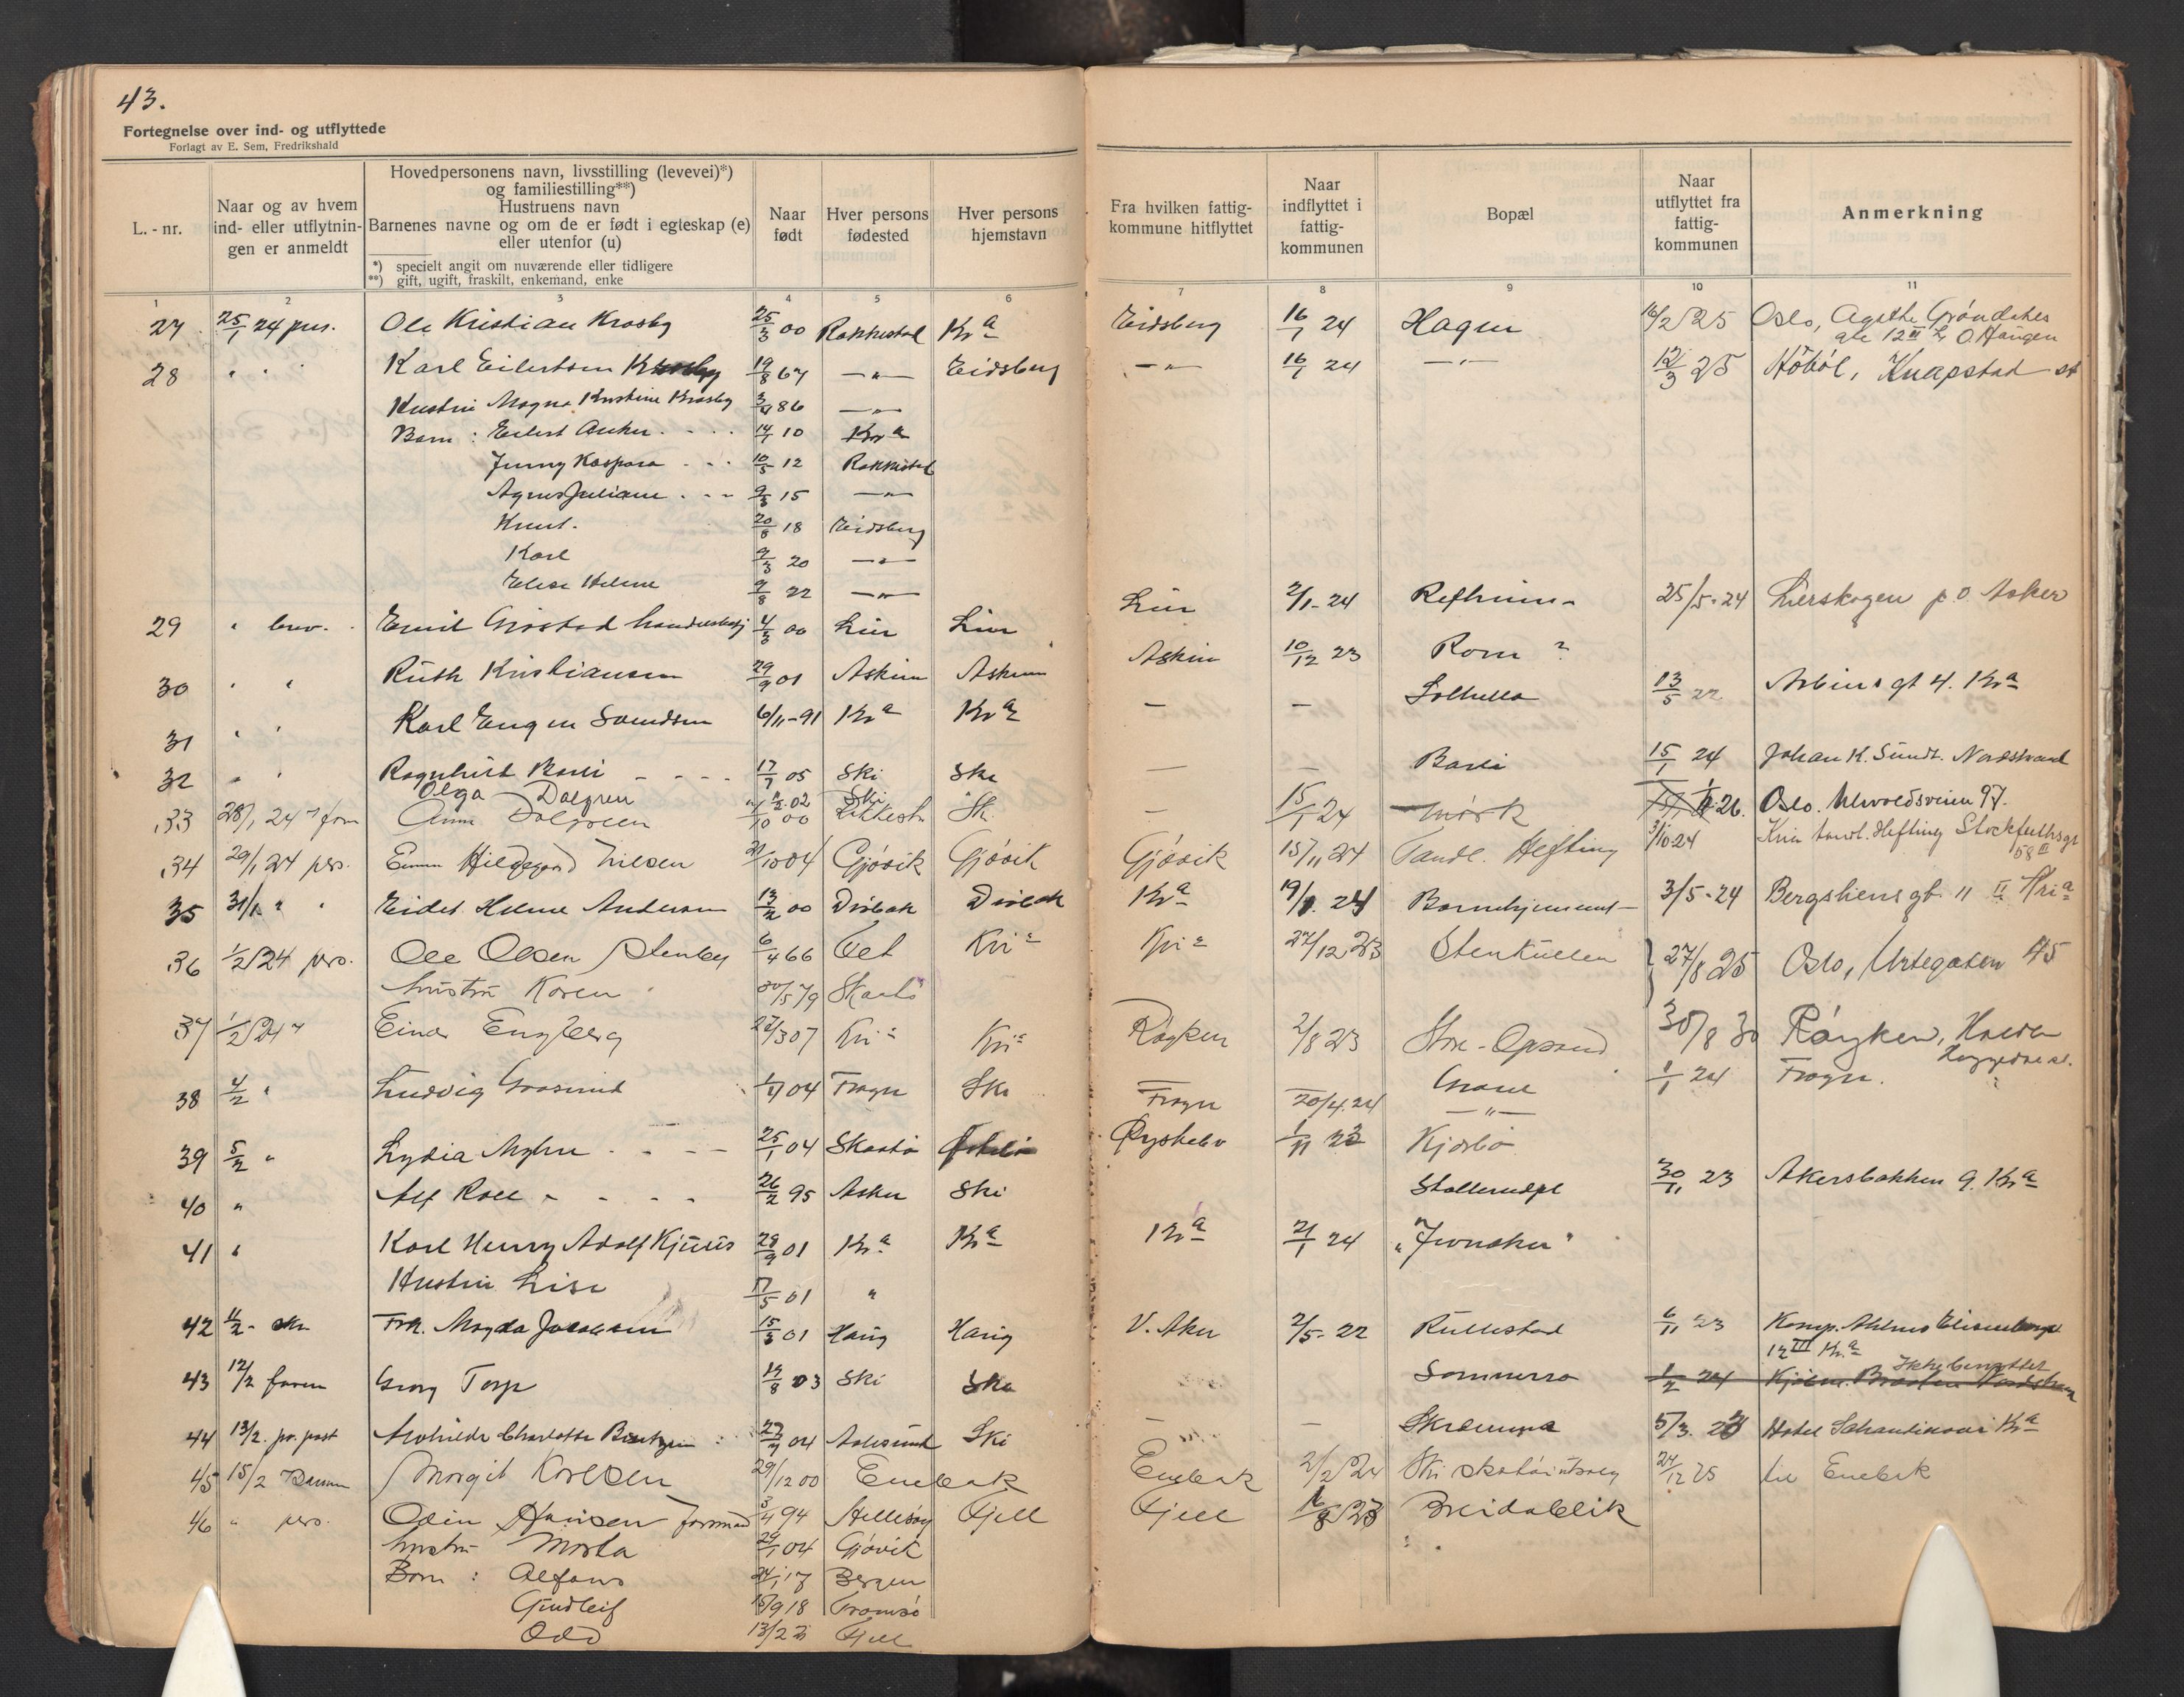 43.
Fortegnelse over ind- og utflyttede
Forlagt av E. Sem, Fredrikshald
L.-nr.
Naar og av hvem ind- eller utflytningen er anmeldt
Hovedpersonens navn, livsstilling (levevei)*) og familiestilling**)
Hustruens navn
Barnenes navne og om de er født i egteskap (e) eller utenfor (u)
*) specielt angit om nuværende eller tidligere
**) gift, ugift, fraskilt, enkemand, enke
Naar født
Hver persons fødested
Hver persons hjemstavn
Fra hvilken fattigkommune hitflyttet
Naar indflyttet i fattigkommunen
Bopæl
Naar utflyttet fra fattigkommunen
Anmerkning
1 2 3 4 5 6 7 8 9 10 11
27 25/1 24 pers. Ole Kristian Krosby 25/3 00 Rakkestad Kra Eidsberg 16/1 24 Hagen 16/2 25 Oslo, Agathe Grøndahls gte 12 II O. Haugen
28 " " Karl Eilertsen Krosby 19/8 67 —"— Eidsberg —"— 16/1 24 —"— 12/3 25 Høbøl, Knapstad st
Hustru Magna Kristine Krosby 86 —"—
Barn : Eilert Anker 14/1 10 Kra
Jenny Kaspara 10/5 12 Rakkestad
Agnes Juliane 9/3 15 —"—
Knut. 20/8 18 Eidsberg
Karl 9/3 20 —"—
Elise Helene 9/8 22 —"—
29 " brev. Emil Grøstad 4/3 00 Lier Lier Lier 2/1-24 25/5-24 Lierskogen p.o. Asker
30 " " Ruth Kristiansen 29/9 01 Askim Askim Askim 10/12 23 Rom ?
31 " " Karl Eugen Svendsen 6/11-91 Kra Kra — — Solhella 13/5 22 Arbins gt 4. Kra
32 " " Ragnhild Basli 17/7 05 Ski Ski — — Basli 15/1 24 Johan K. Sundt. Nordstrand
Olga Dalgren 02 Ski
33 28/1 24 Anna Dalgreen /10 00 Sk. — 15/1 24 Mørk 26. Oslo. Ulvoldsveien 97.
34 29/1 24 pers. Emma Hildegard Nilsen 04 Gjøvik Gjøvik Gjøvik 15/11 24 Tandl. Hefting 3/10-24 Kria tandl. Hefting Stockflethsgt 58 II
35 31/1 " " Eidel Helene Andersen 13/2 00 Drøbak Drøbak Kra 19/1. 24 Barnehjemmet 3/5-24 Bergsliens gt. 11 II Kria
36 1/2 24 pers. Ole Olsen Stenberg 6/4 66 Vet Kria Kria 27/12 23 Stenkullen } 27/8 25 Oslo, Urtegaten 45
hustru Karen 30/5 79 Skaatø
37 1/2 24 " Einar Engberg 27/3 07 Kria Kria Røyken 2/8 23 Store-Opsand 30/8 30 Røyken,
38 4/2 " Ludvig Graarud 04 Frogn Ski Frogn 20/4.24 Grane —"— 1/1 24 Frogn.
39 5/2 " Lydia Myhre 25/1 04 Skaatø Øyskebø 1/11 23 Kjosbø
40 " Alf Roll 26/2 95 Asker Ski Stallerudpl 30/11 23 Akersbakken 9. Kra
41 " Karl Henry Adolf Kjuus 28/9 01 Kra Kra Kra 2/1 24 "Furuaker"
Hustru Lise 17/5 01 "
42 4/2- Frk. Magda Jacobsen 15/3 01 Haug Haug V. Aker 2/5-22 Rullestad 6/11 23 12 III Kra
43 12/2 faren Georg Torp 19/8 03 Ski Ski Sommerro 1/2 24 Ikke benyttet
44 13/2. pr. post Charlotte 27/ 04 Aalesund Ski — — 5/3. 23 Hotel Kra
45 15/2 Margit Karlsen 29/12 00 Enebak Enebak 2/2 24 Ski 24/12 25 til Enebak
46 " pers. Odin Hansen formand 3/4 94 Hellesøy Fjell Fjell 23 Breidablik
hustru Marta 29/1 04 Gjøvik
Barn : Alfons 24/1 17 Bergen
Gudleif 15/9 18 Tromsø
Odd 13/2 Fjell